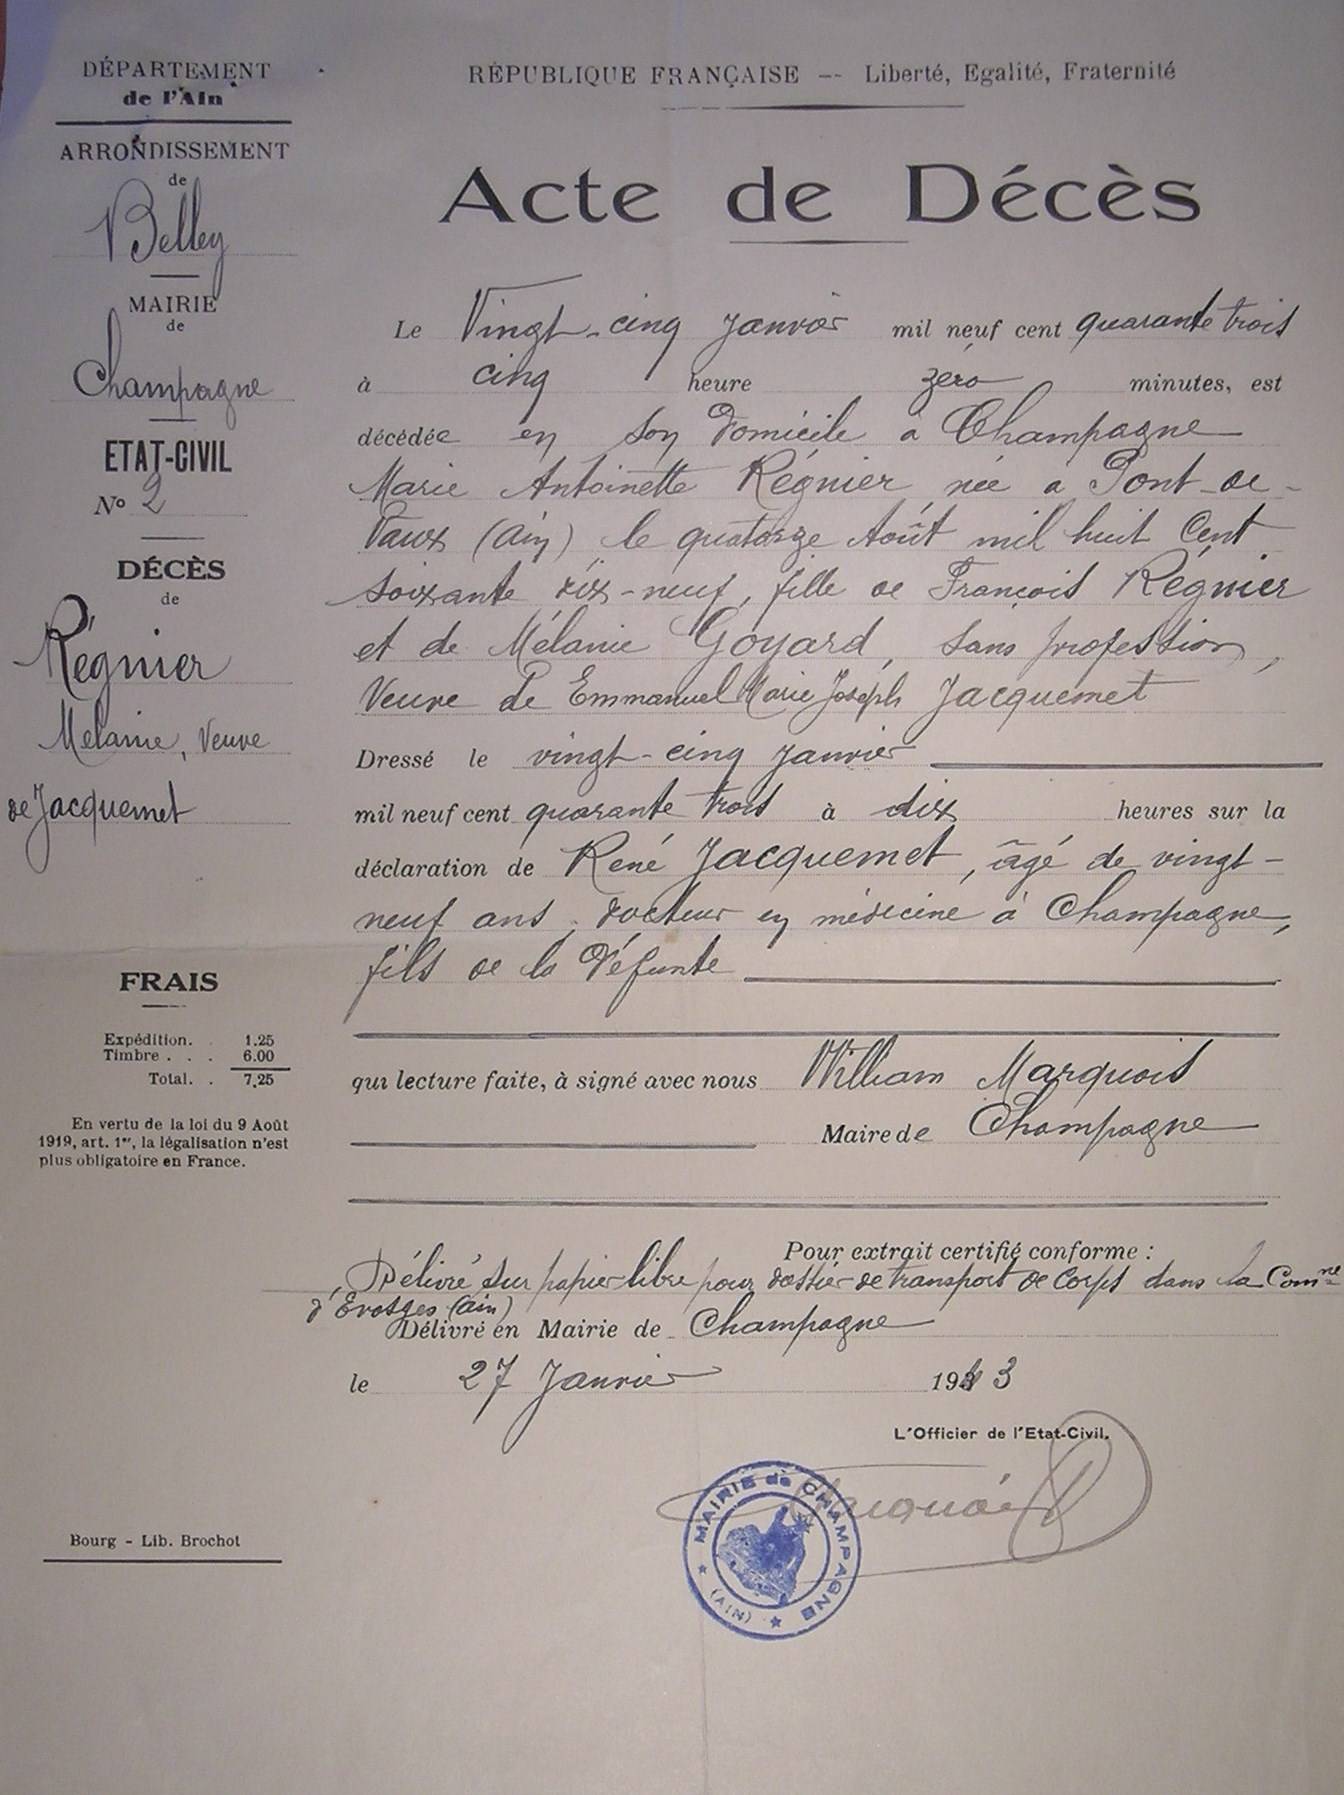 DÉPARTEMENT
de l'Ain
ARRONDISSEMENT
de
Belley
MAIRIE
de
Champagne
ETAT-CIVIL
No 2
DÉCÈS
de
Régnier
Mélanie, Veuve
de Jacquemet
FRAIS
Expédition. . 1.25
Timbre . . . 6.00
Total. . 7,25
En vertu de la loi du 9 Août
1919, art. 1er, la légalisation n'est
plus obligatoire en France.
Bourg - Lib. Brochot
RÉPUBLIQUE FRANÇAISE -- Liberté, Egalité, Fraternité
Acte de Décès
Le Vingt-cinq janvier mil neuf cent quarante trois
à cinq heure zéro minutes, est
décédée en son domicile à Champagne
Marie Antoinette Régnier née à Pont-de-
Vaux (Ain) le quatorze Août mil huit Cent
soixante dix-neuf, fille de François Régnier
et de Mélanie Goyard, sans profession,
Veuve de Emmanuel Marie Joseph Jacquemet
Dressé le vingt-cinq janvier
mil neuf cent quarante trois à dix heures sur la
déclaration de René Jacquemet, âgé de vingt-
neuf ans, docteur en médecine à Champagne,
fils de la Défunte
qui lecture faite, à signé avec nous William Marquois
Maire de Champagne
Pour extrait certifié conforme :
Délivré sur papier libre pour dossier de transport de Corps dans la Comne
d'Evosges (Ain)
Délivré en Mairie de Champagne
le 27 Janvier 1943
L'Officier de l'Etat-Civil.
MAIRIE de CHAMPAGNE
(AIN)